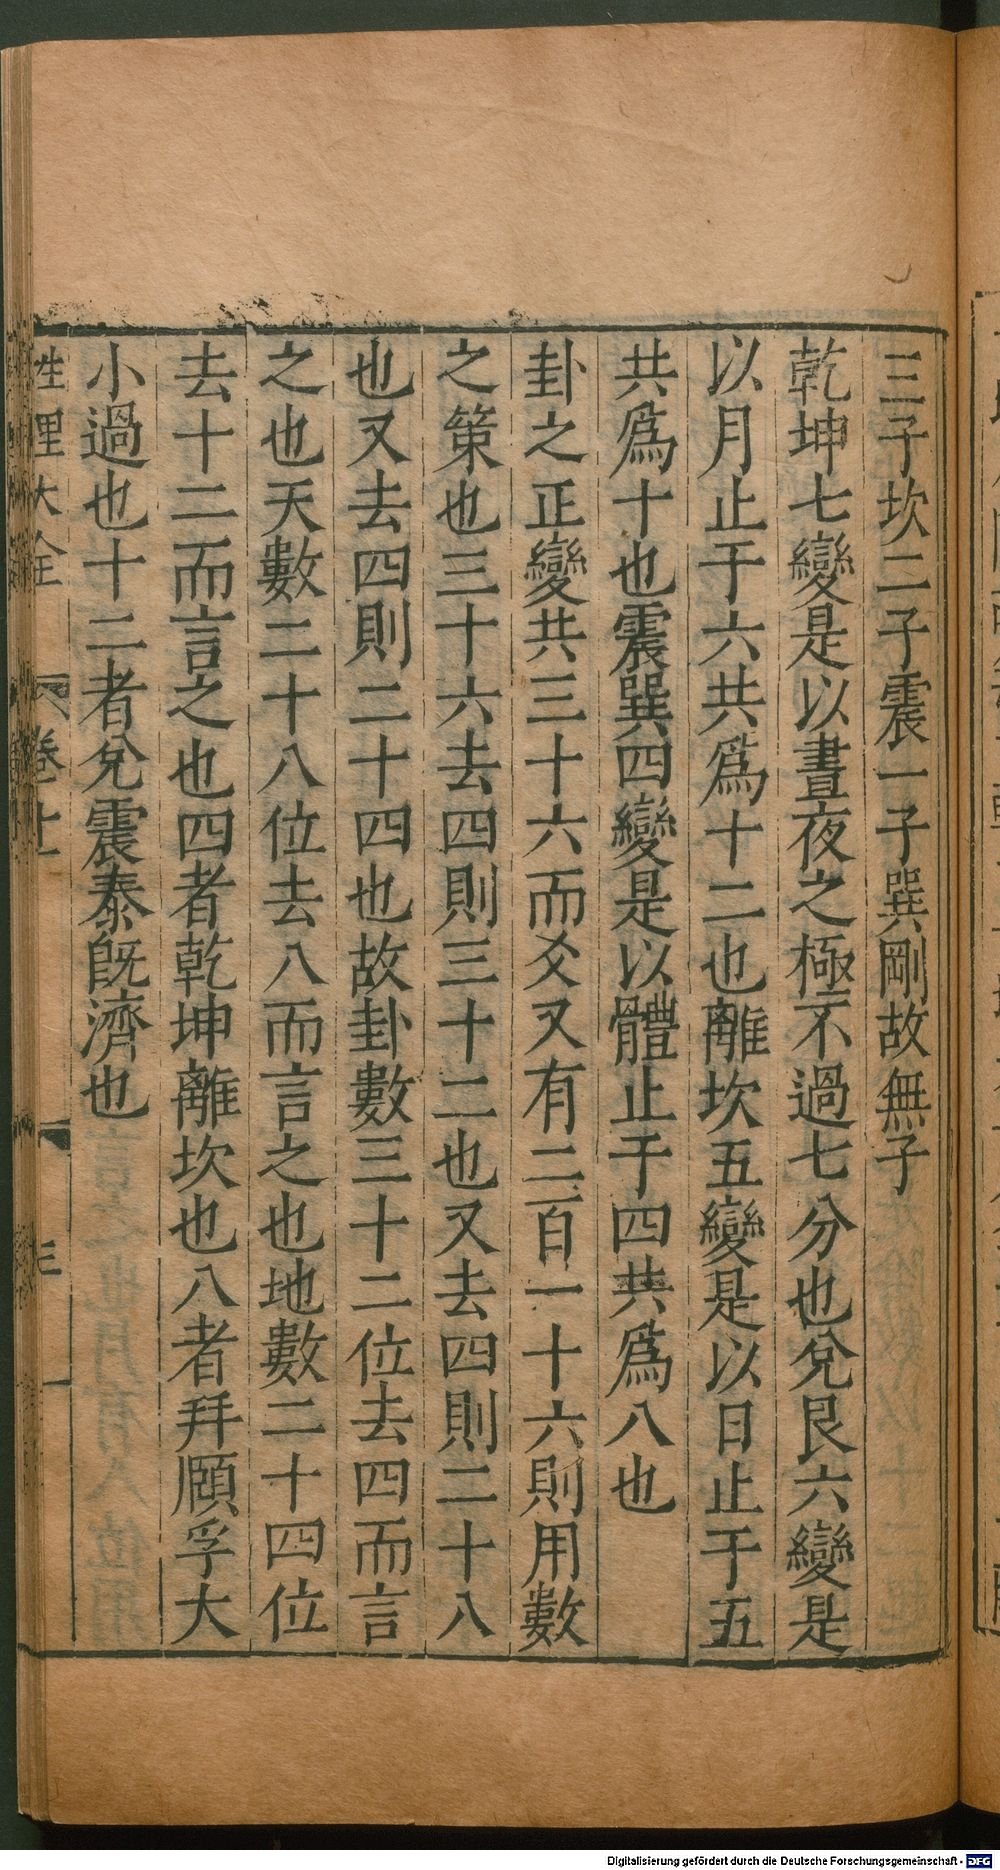 三子坎二子震一子巽剛故無子
乾坤七變是以晝夜之極不過七分也兌艮六變是
以月止于六共爲十二也離坎五變是以日止于五
共爲十也震巽四變是以體止于四共爲八也
卦之正變共三十六而爻又有二百一十六則用數
之策也三十六去四則三十二也又去四則二十八
也又去四則二十四也故卦數三十二位去四而言
之也天數二十八位去八而言之也地數二十四位
去十二而言之也四者乾坤離坎也八者并頤孚大
小過也十二者兌震泰旣濟也
性理大全
卷十一
三
Digitalisierung gefördert durch die Deutsche Forschungsgemeinschaft - DFG